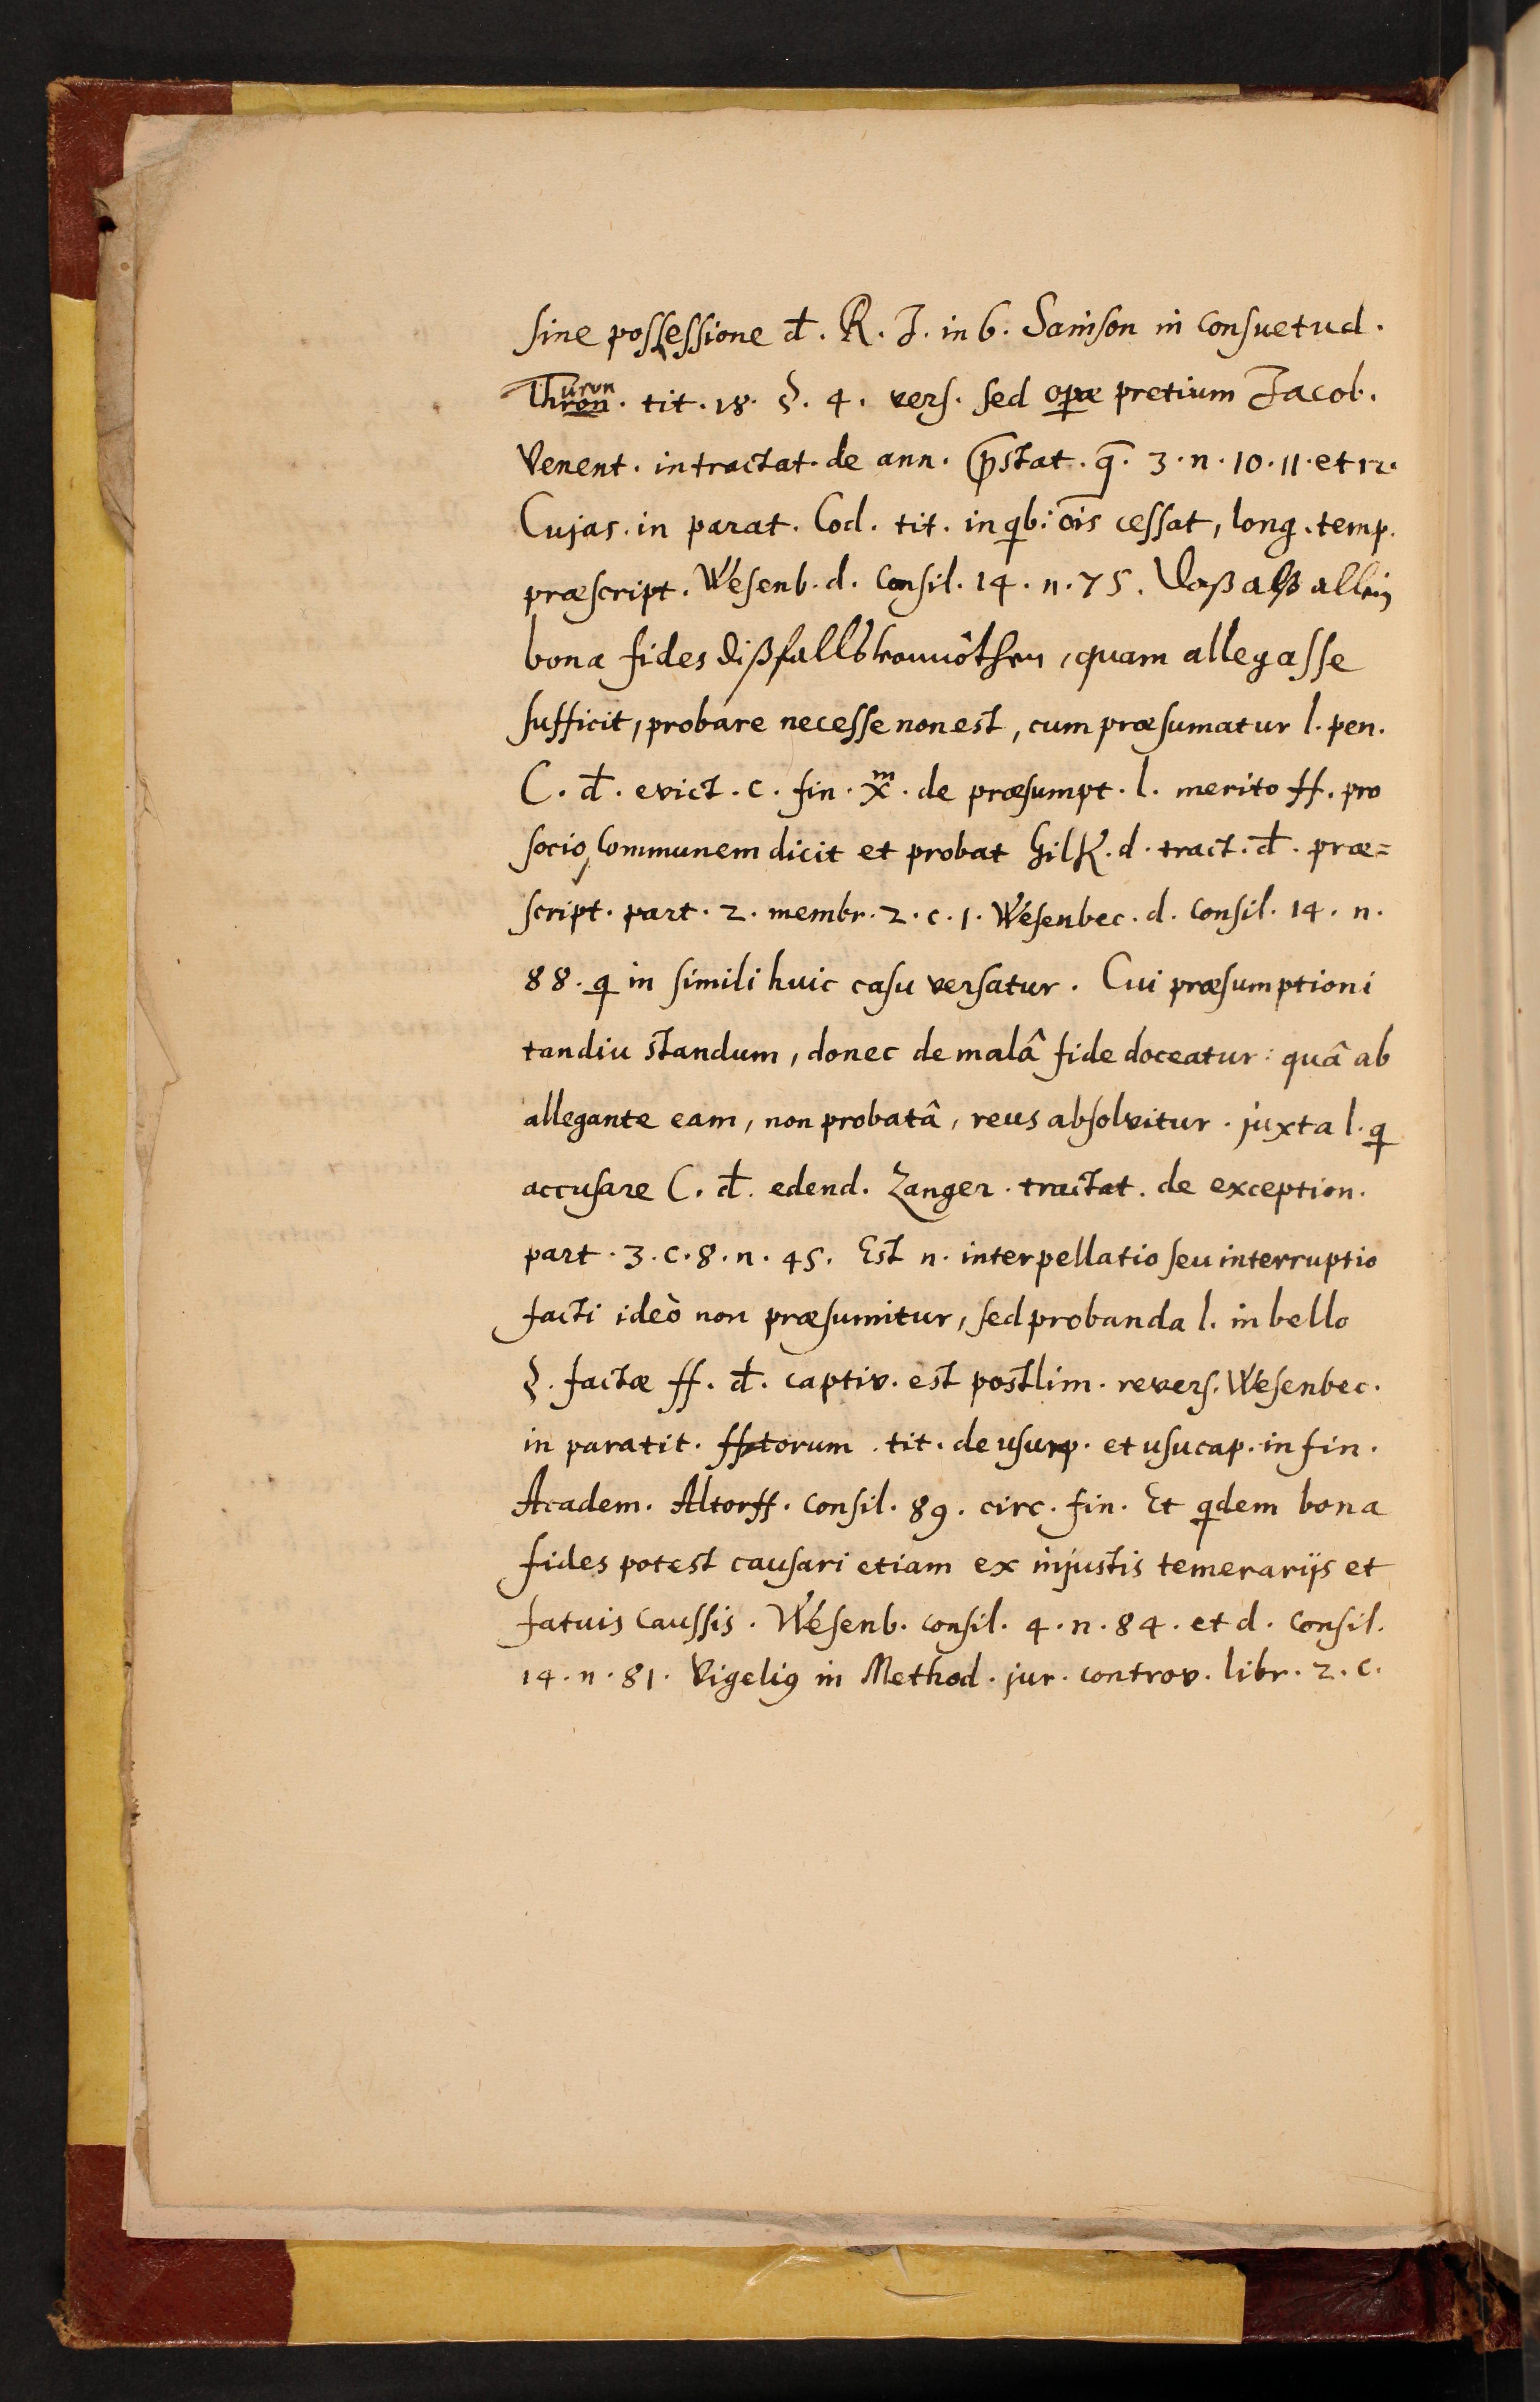 sine possessione đ. R. J. in 6. Samson in consuetud.
Thuron. tit. 18. §. 4. vers. sed operæ pretium Jacob.
Venent. in tractat. de ann. p̄stat. q̄. 3. n. 10. 11. et 12.
Cujas. in parat. Cod. tit. in qb: ōis cessat, long. temp.
præscript. Wesenb. d. Consil. 14. n. 75. Daß alß allein
bona fides dißfallß vonnöthen, quam allegasse
sufficit, probare necesse non est, cum præsumatur l. pen.
C. đ. evict. c. fin. xᵐ. de præsumpt. l. merito ff. pro
socio, Communem dicit et probat Gilk. d. tract. đ. præ=
script. part. 2. membr. 2. c. 1. Wesenbec. d. Consil. 14. n.
88. q in simili huic casu versatur. Cui præsumptioni
tandiu standum, donec de malâ fide doceatur: quâ ab
allegante eam, non probatâ, reus absolvitur. juxta l. q
accusare C. đ. edend. Zanger. tractat. de exception.
part. 3. c. 8. n. 45. Est n. interpellatio seu interruptio
facti ideò non præsumitur, sed probanda l. in bello
§. factæ ff. đ. captiv. est postlim. revers. Wesenbec.
in paratit. fftorum. tit. de usurp. et usucap. in fin.
Academ. Altorff. Consil. 89. circ. fin. Et qdem bona
fides potest causari etiam ex injustis temerarijs et
fatuis caussis. Wesenb. consil. 4. n. 84. et d. Consil.
14. n. 81. Vigeliꝰ in Method. jur. controv. libr. 2. c.